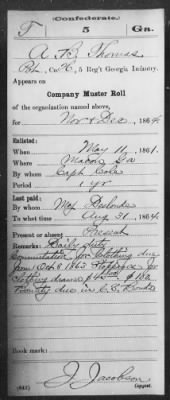 (Confederate.)
T 5 Ga.
A. B. Thomas
Co. 5 Reg't Georgia Infantry.
Appears on
Company Muster Roll
of the organization named above,
for Nov & Dec, 1864.
Enlisted:
When May 11, 1861.
Where Macon Ga
By whom Capt Cole
Period 1 yr
Last paid:
By whom Maj
To what time Aug 31, 1864.
Present or absent Present
Remarks: Daily duty
Commutation for Clothing due
from Oct 8 1863
Clothing drawn
Bounty due in C.S. Bonds
Book mark:
J. Jacobson
(642) Copyist.